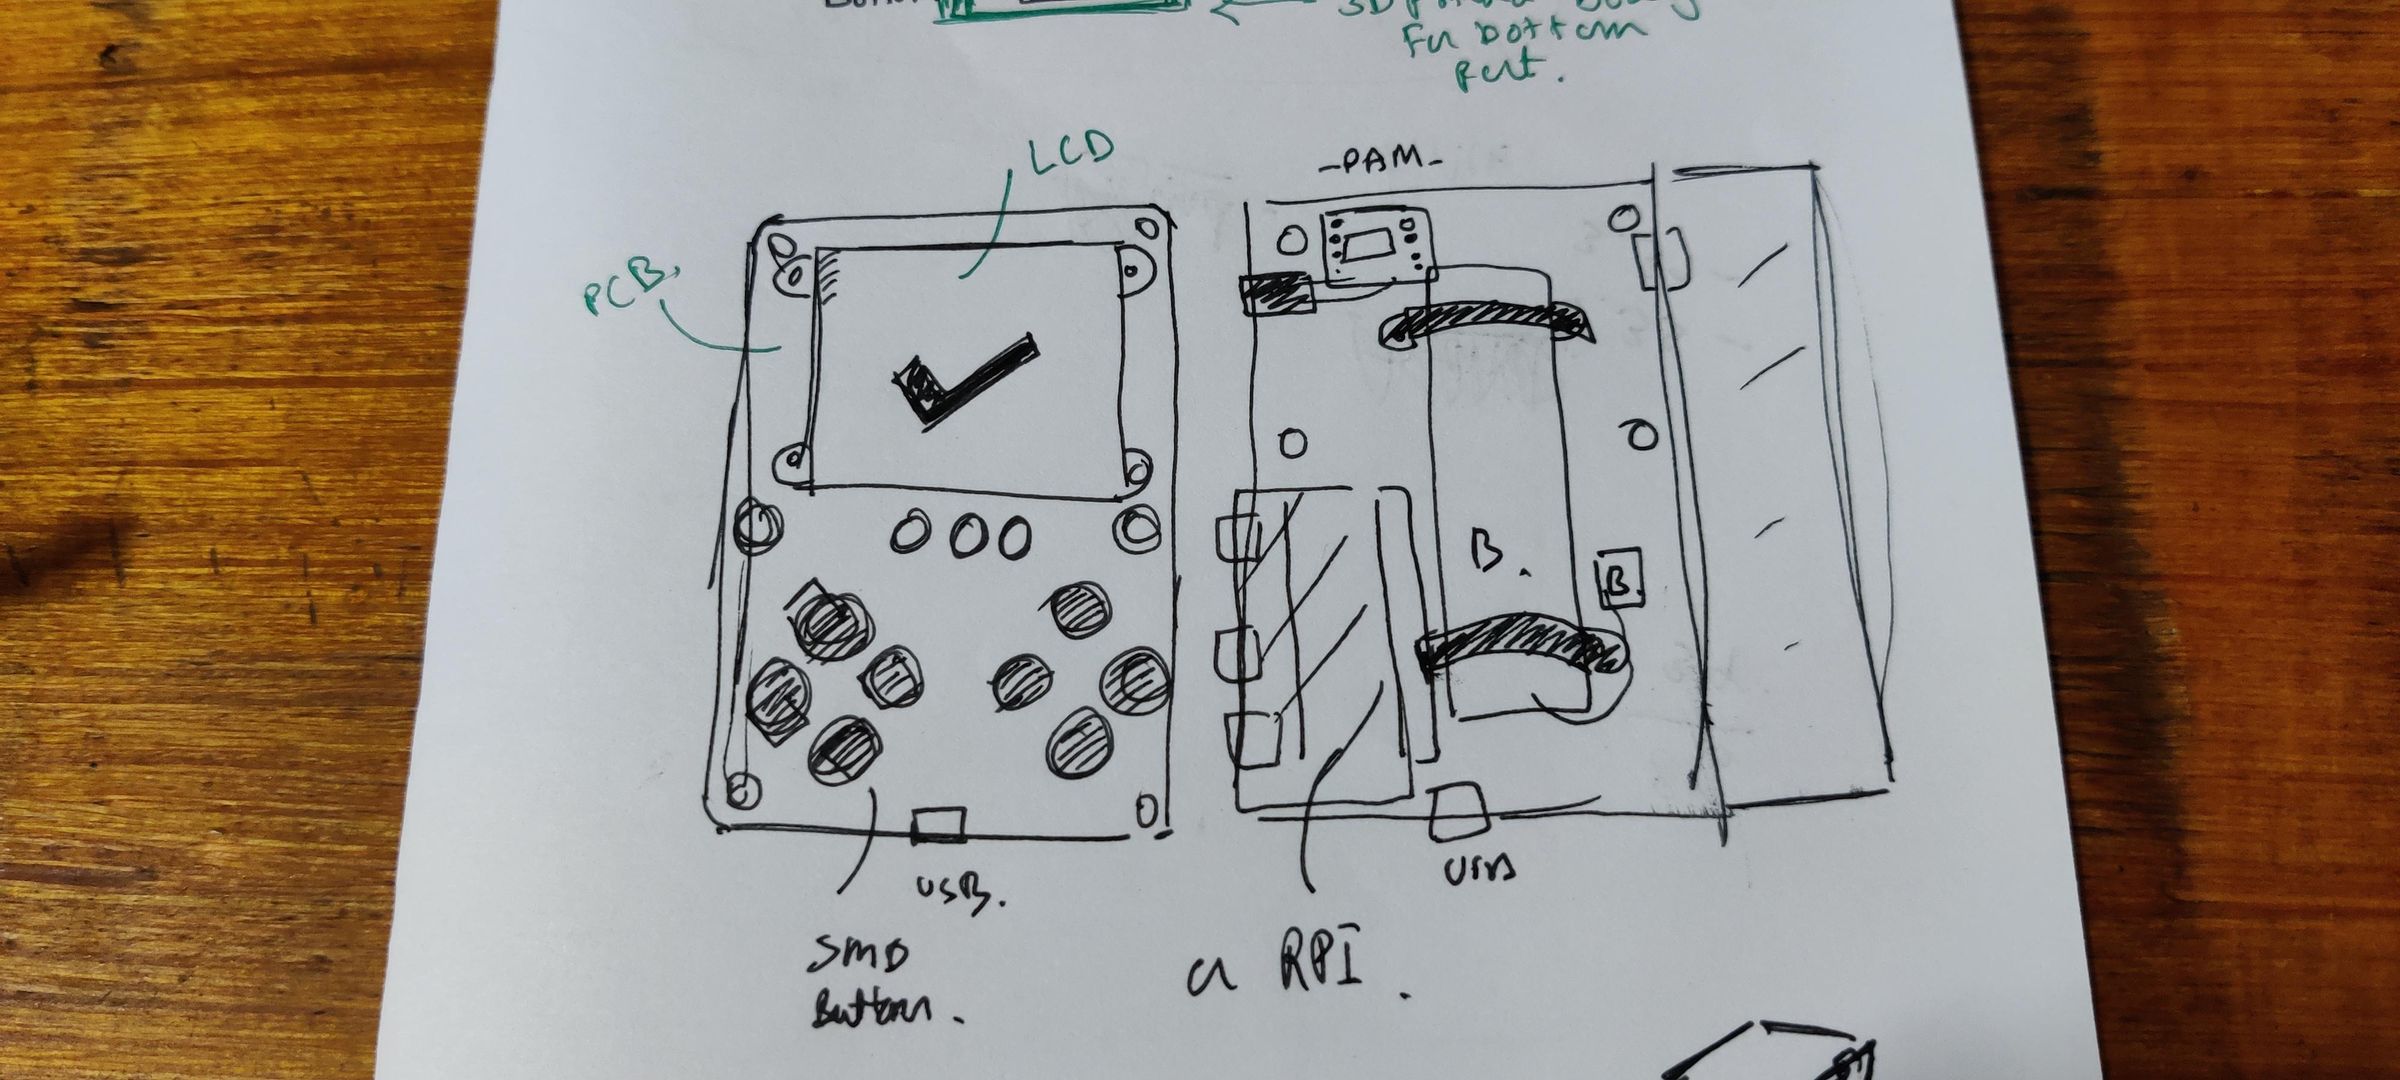 3D
For bottom
part.
LCD
-PAM-
PCB.
B.
B.
USB.
USB
SMD
Button.
a RPI.